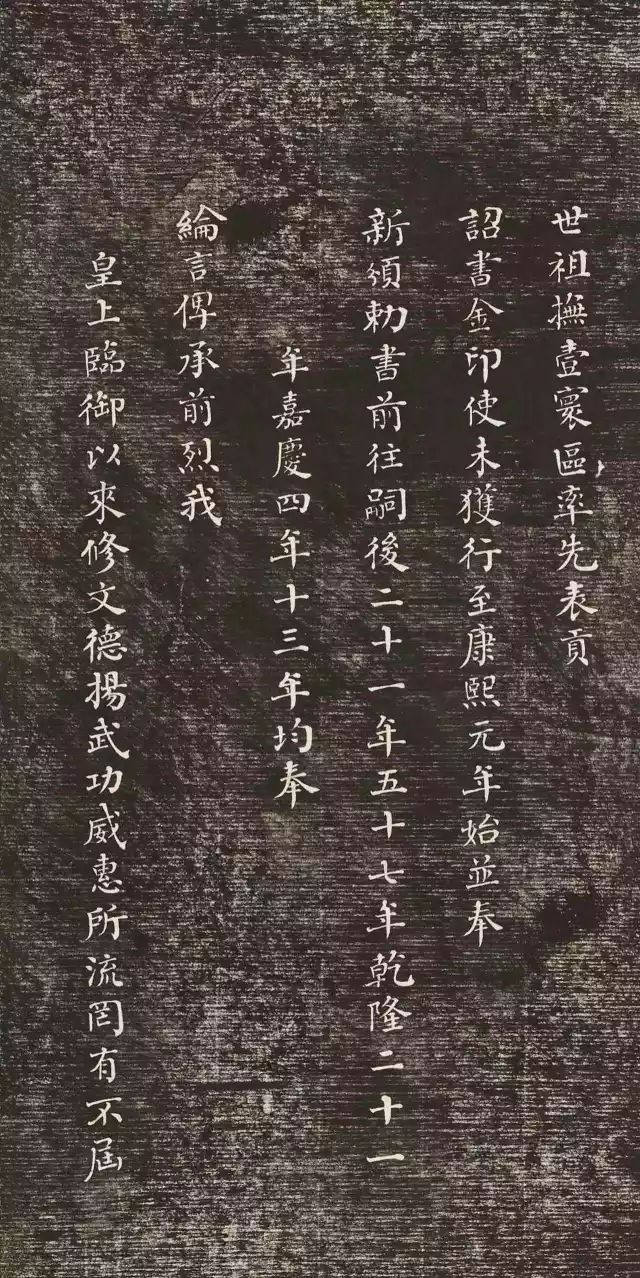 世祖撫壹寰區率先表貢
詔書金印使未獲行至康熙元年始並奉
新頒勅書前往嗣後二十一年五十七年乾隆二十一
年嘉慶四年十三年均奉
綸言俾承前烈我
皇上臨御以來修文德揚武功威惠所流罔有不屆